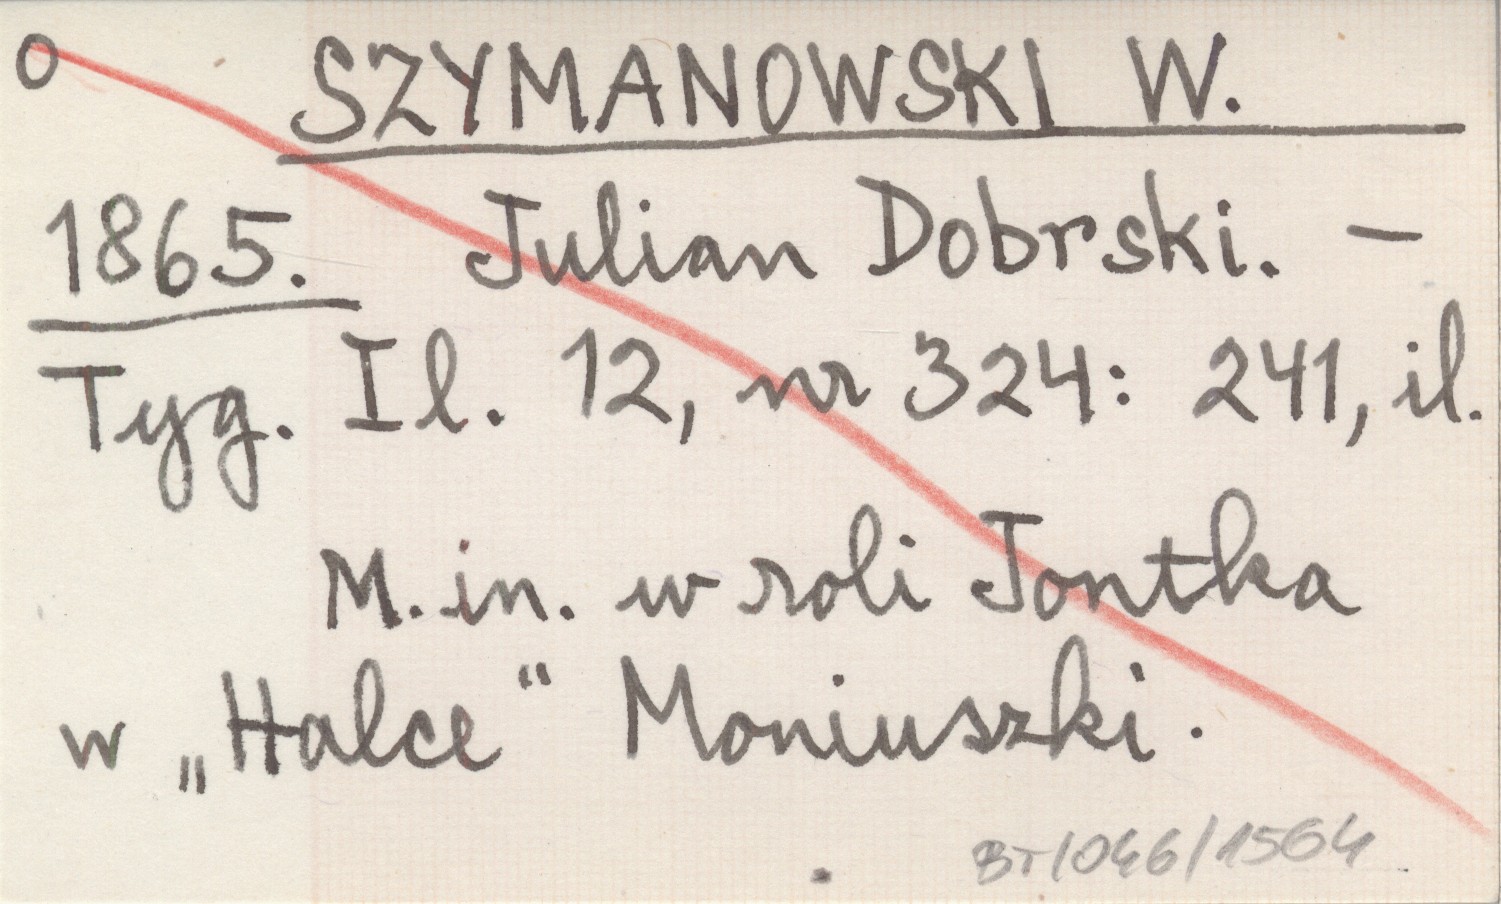 O SZYMANOWSKI W.
1865. Julian Dobrski. –
Tyg. Il. 12, nr 324: 241, il.
M. in. w roli Jontka
w „Halce“ Moniuszki.
BT/046/1564